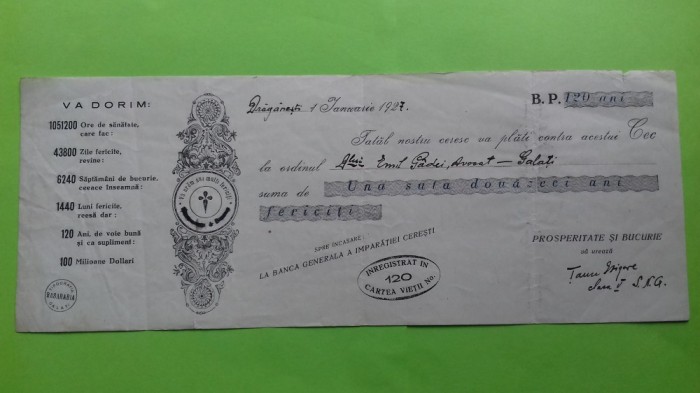 VA DORIM:
1051200 Ore de sănătate,
care fac:
43800 Zile fericite,
revine:
6240 Săptămâni de bucurie,
ceeace înseamnă:
1440 Luni fericite,
reesă dar:
120 Ani, de voie bună
și ca supliment:
100 Milioane Dollari
BASARABIA
Drăgănești 1 Ianuarie 1927.
B. P. 120 ani
Tatăl nostru ceresc va plăti contra acestui Cec
la ordinul Dlui Emil Avocat – Galați
suma de Una suta douăzeci ani
fericiți
SPRE INCASARE:
LA BANCA GENERALA A IMPARAȚIEI CEREȘTI
INREGISTRAT IN
120
CARTEA VIEȚII No.
PROSPERITATE ȘI BUCURIE
vă urează